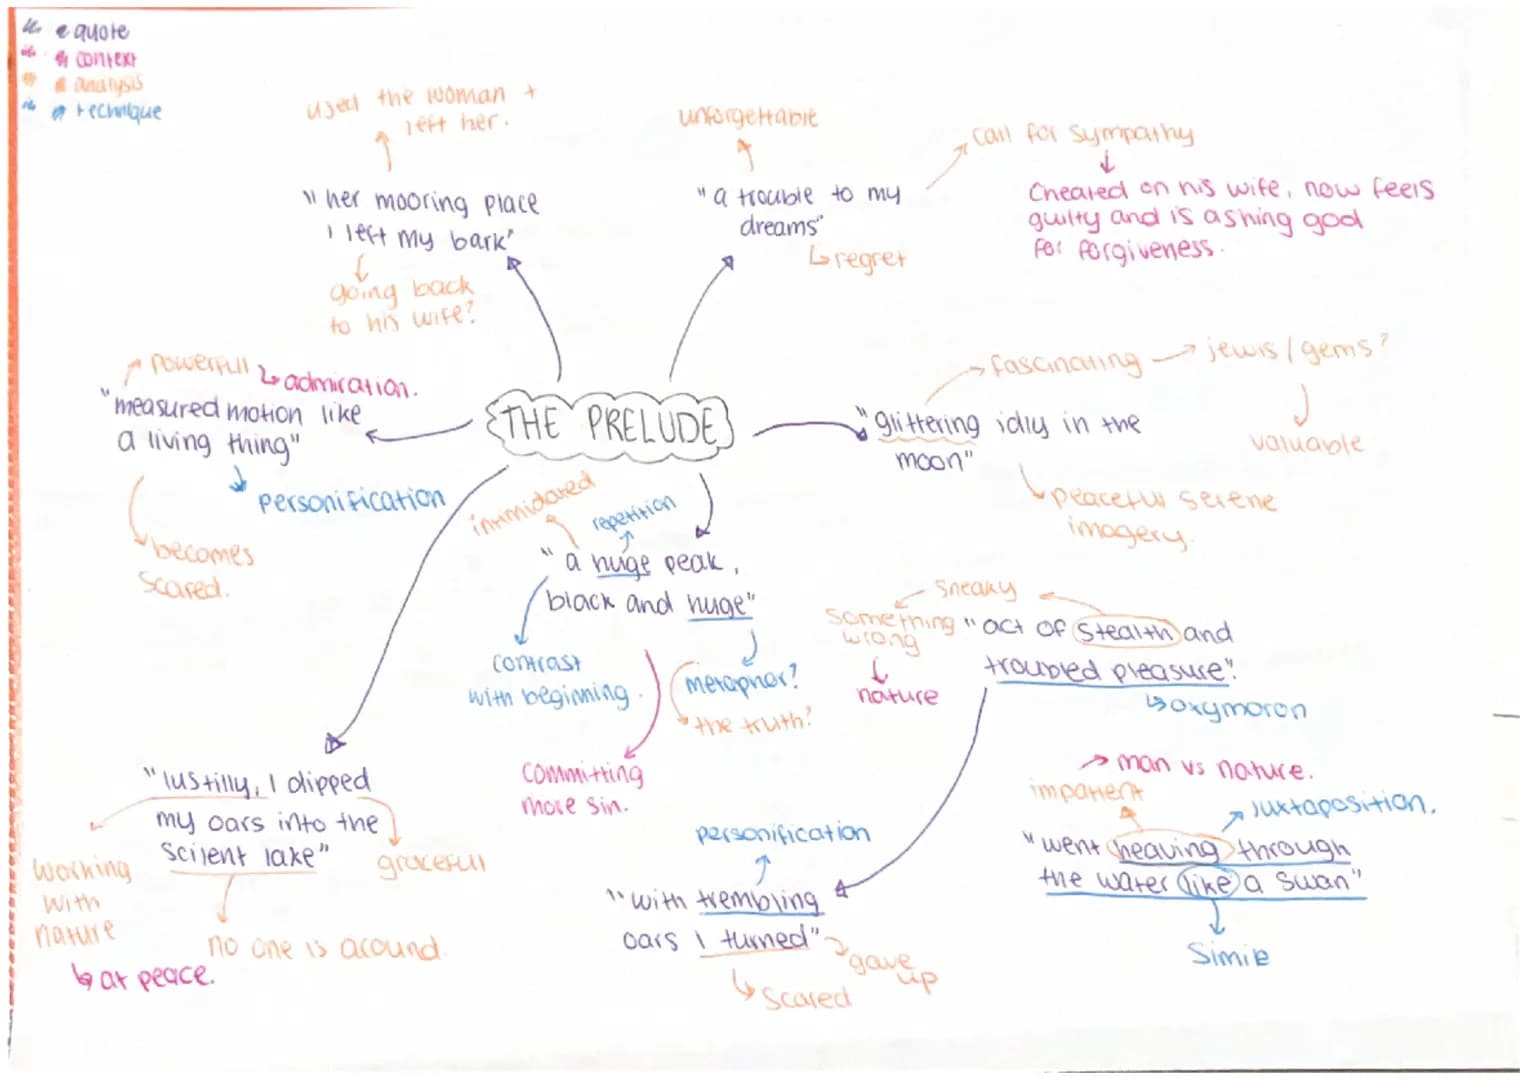 quote
context
analysis
technique
used the woman +
left her.
"her mooring place
I left my bark"
going back
to his wife?
unforgettable
"a trouble to my
dreams"
regret
call for sympathy
Cheated on his wife, now feels
guilty and is asking god
for forgiveness.
powerfull
admiration.
"measured motion like
a living thing"
personification
becomes
scared.
THE PRELUDE
fascinating
jewls / gems?
valuable
"glittering idly in the
moon"
peaceful serene
imagery.
intimidated
repetition
"a huge peak,
black and huge"
contrast
with beginning.
metaphor?
the truth?
committing
more sin.
sneaky
something
wrong
nature
"act of stealth and
troubled pleasure".
oxymoron
"lustilly, I dipped
my oars into the
scilent lake"
working
with
nature
at peace.
gracefull
no one is around.
personification
"with trembling
oars I turned"
gave
up
scared
man vs nature.
impatient
juxtaposition.
"went heaving through
the water like a swan"
Simile